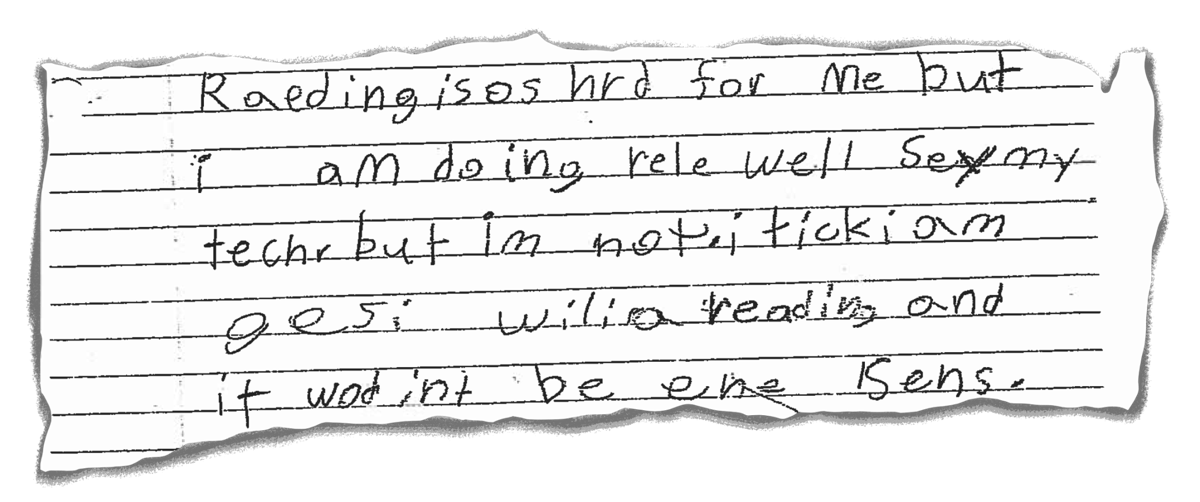 Raeding is os hrd for Me but
i am doing rele well Sex my
techr but im not. i tick i am
gesi wili a reading and
it wod int be ene Sens.